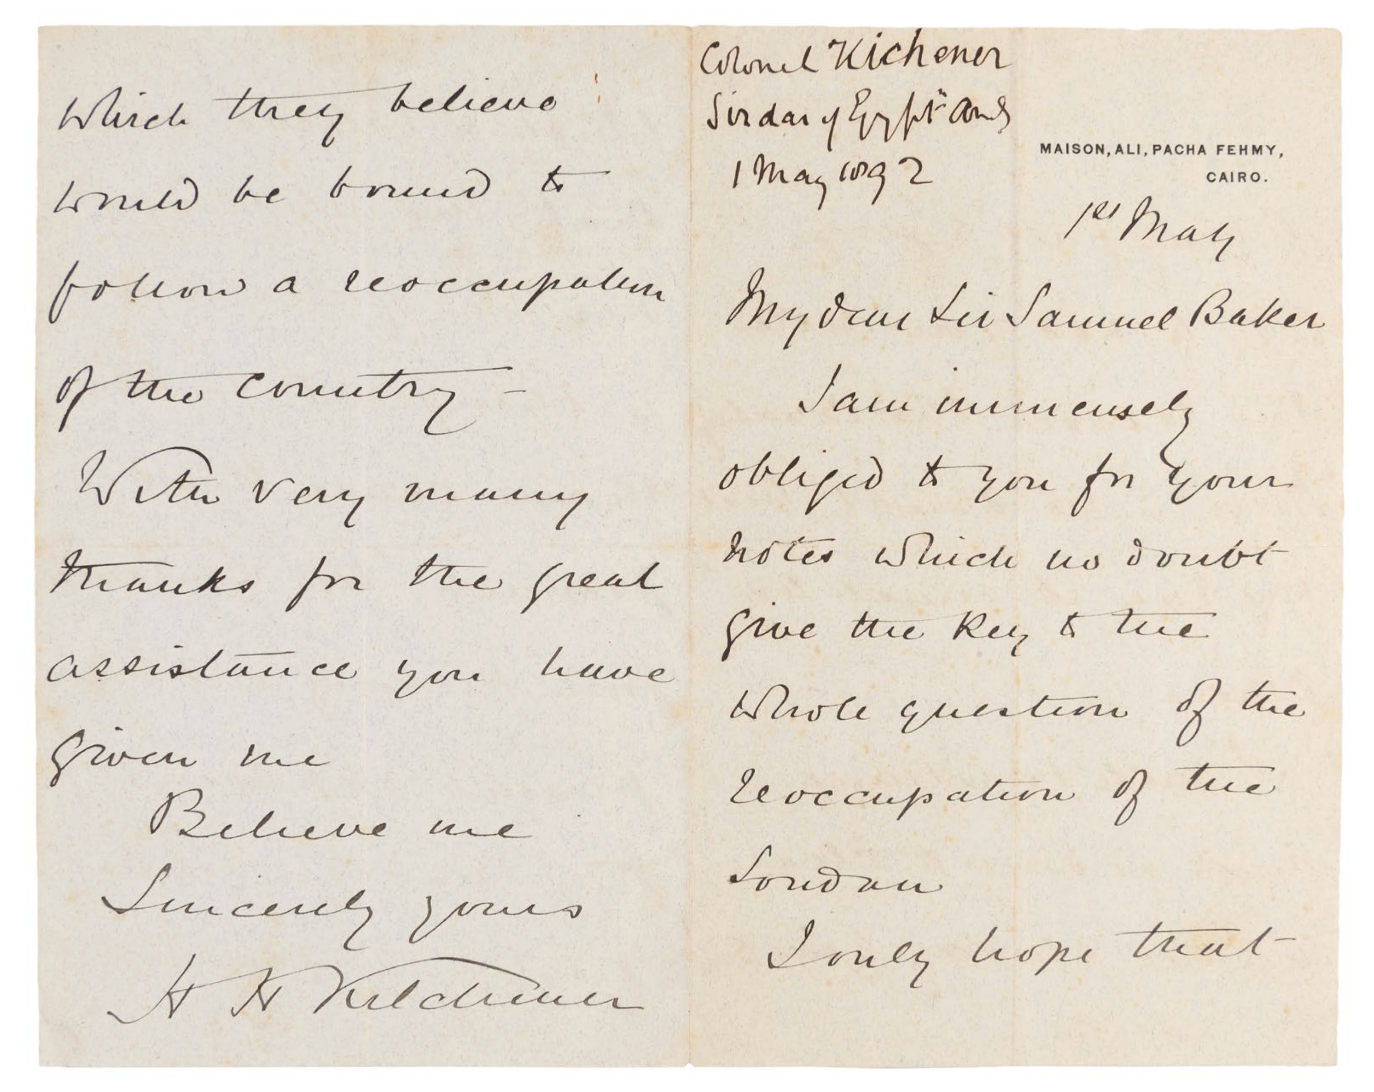 Colonel Kichener
Sirdar of Egyptn Army
1 May 1892
MAISON, ALI, PACHA FEHMY,
CAIRO.
1st May
My dear Sir Samuel Baker
I am immensely
obliged to you for your
notes which no doubt
give the key to the
whole question of the
reoccupation of the
Soudan
I only hope that
which they believe
would be bound to
follow a reoccupation
of the country –
With very many
thanks for the great
assistance you have
given me
Believe me
Sincerely yours
H H Kitchener